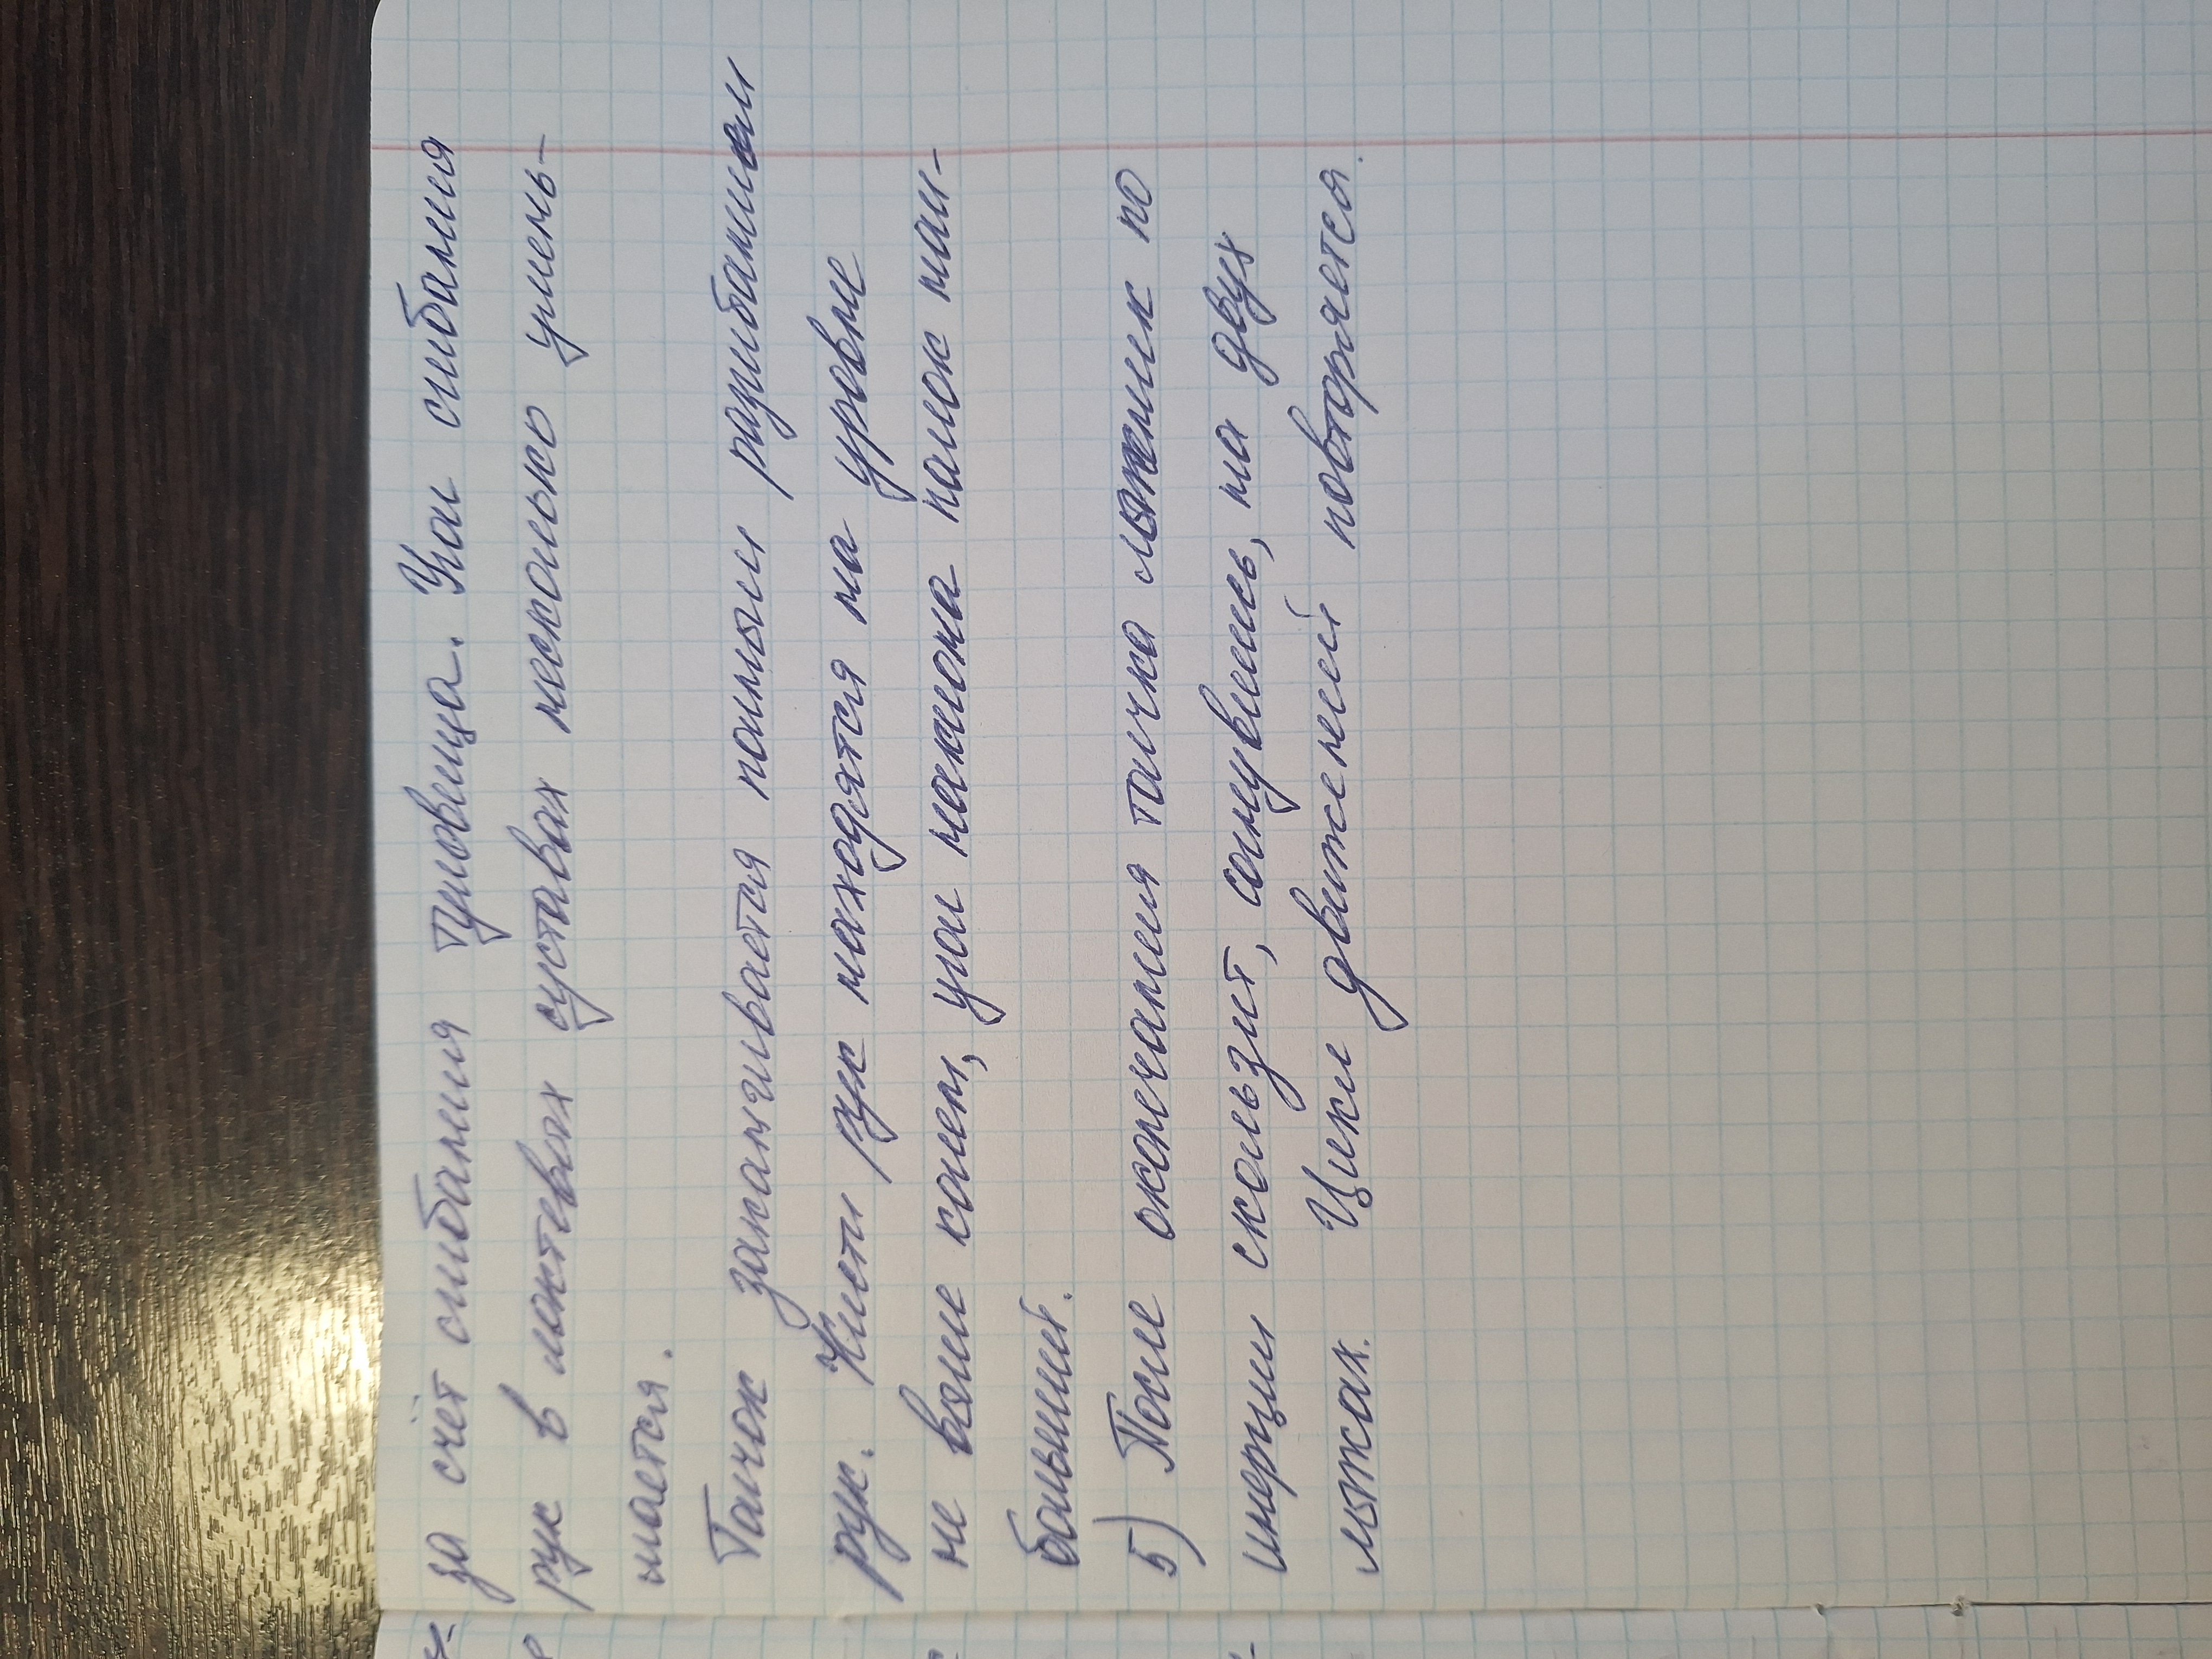 за счёт сгибания туловища. Угол сгибания
рук в локтевых суставах несколько умень-
шается.
Толчок заканчивается полным разгибанием
рук. Кисти рук находятся на уровне
не выше колен, угол наклона палок наи-
больший.
5) После окончания толчка лыжник по
инерции скользит, согнувшись, на двух
лыжах. Цикл движений повторяется.